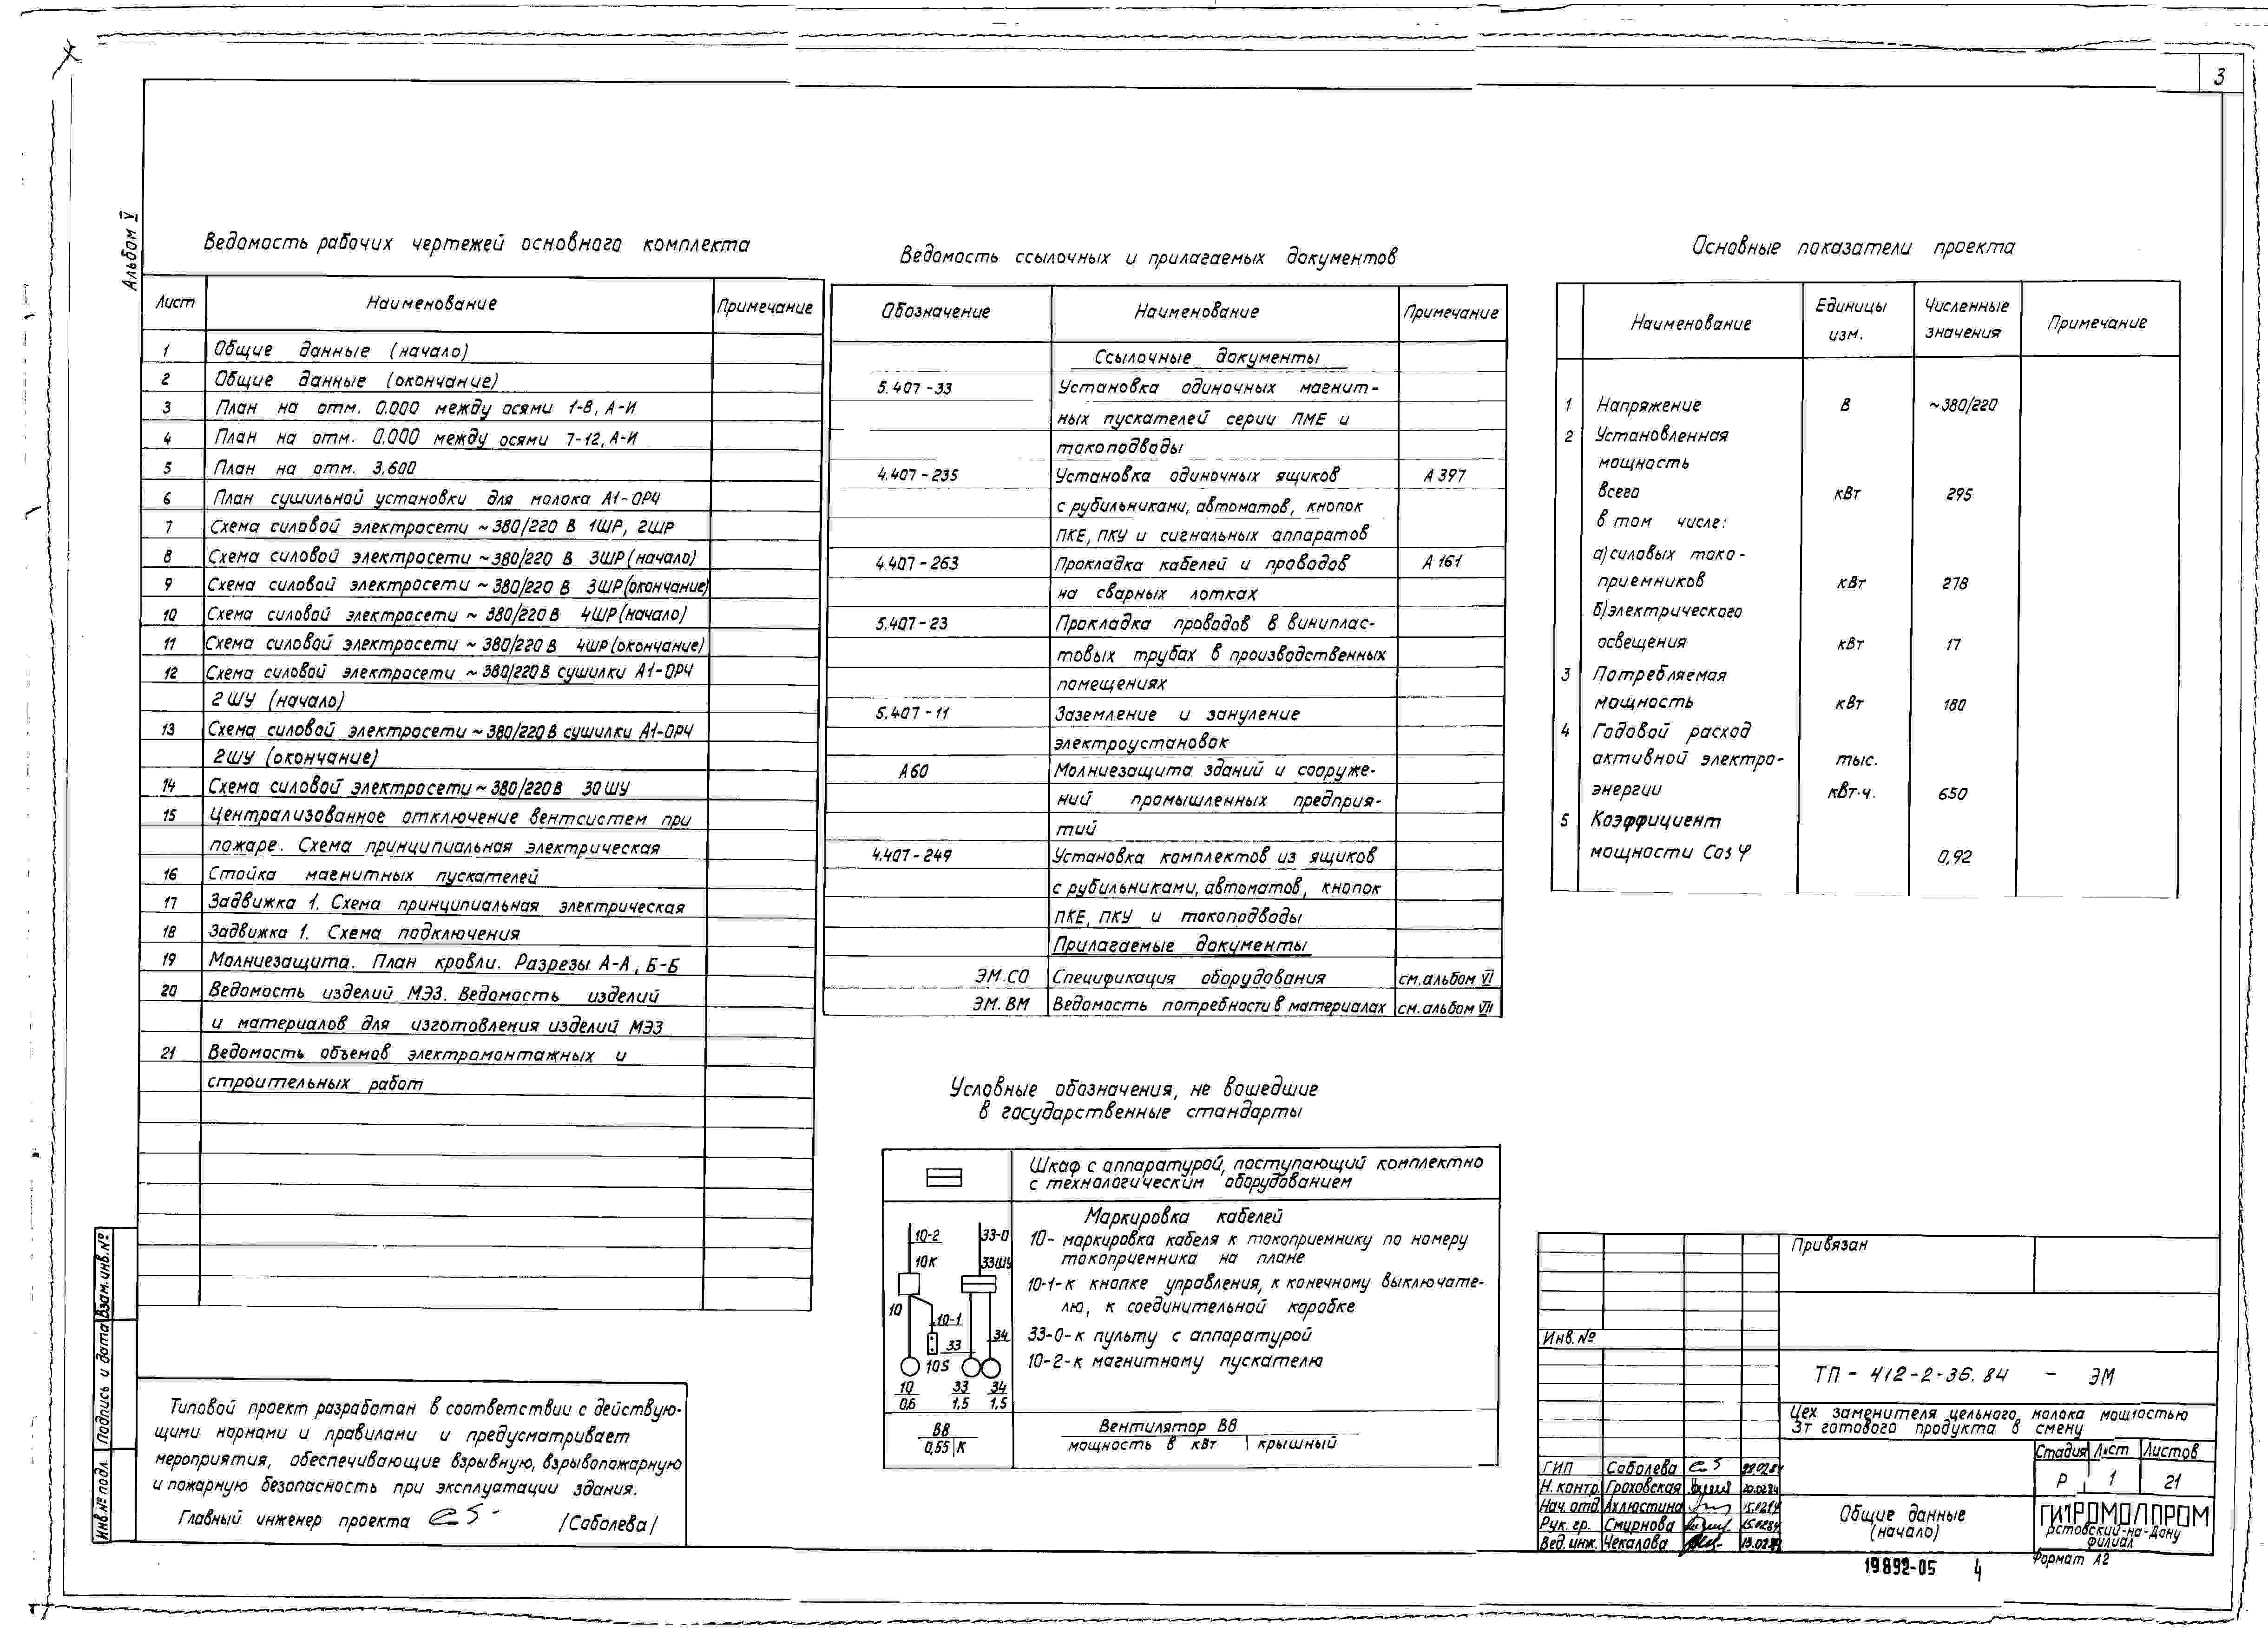 3
Альбом V
Ведомость рабочих чертежей основного комплекта
Лист Наименование Примечание
1 Общие данные (начало)
2 Общие данные (окончание)
3 План на отм. 0.000 между осями 1-8, А-И
4 План на отм. 0.000 между осями 7-12, А-И
5 План на отм. 3.600
6 План сушильной установки для молока А1-ОРЧ
7 Схема силовой электросети ~380/220 В 1ШР, 2ШР
8 Схема силовой электросети ~380/220 В 3ШР (начало)
9 Схема силовой электросети ~380/220 В 3ШР (окончание)
10 Схема силовой электросети ~380/220 В 4ШР (начало)
11 Схема силовой электросети ~380/220 В 4ШР (окончание)
12 Схема силовой электросети ~380/220 В сушилки А1-ОРЧ
2ШУ (начало)
13 Схема силовой электросети ~380/220 В сушилки А1-ОРЧ
2ШУ (окончание)
14 Схема силовой электросети ~380/220 В 30ШУ
15 Централизованное отключение вентсистем при
пожаре. Схема принципиальная электрическая
16 Стойка магнитных пускателей
17 Задвижка 1. Схема принципиальная электрическая
18 Задвижка 1. Схема подключения
19 Молниезащита. План кровли. Разрезы А-А, Б-Б
20 Ведомость изделий МЭЗ. Ведомость изделий
и материалов для изготовления изделий МЭЗ
21 Ведомость объемов электромонтажных и
строительных работ
Ведомость ссылочных и прилагаемых документов
Обозначение Наименование Примечание
Ссылочные документы
5.407-33 Установка одиночных магнит-
ных пускателей серии ПМЕ и
токоподводы
4.407-235 Установка одиночных ящиков А397
с рубильниками, автоматов, кнопок
ПКЕ, ПКУ и сигнальных аппаратов
4.407-263 Прокладка кабелей и проводов А161
на сварных лотках
5.407-23 Прокладка проводов в виниплас-
товых трубах в производственных
помещениях
5.407-11 Заземление и зануление
электроустановок
А60 Молниезащита зданий и сооруже-
ний промышленных предприя-
тий
4.407-249 Установка комплектов из ящиков
с рубильниками, автоматов, кнопок
ПКЕ, ПКУ и токоподводы
Прилагаемые документы
ЭМ.СО Спецификация оборудования см. альбом VI
ЭМ.ВМ Ведомость потребности в материалах см. альбом VII
Основные показатели проекта
Наименование Единицы изм. Численные значения Примечание
1 Напряжение В ~380/220
2 Установленная
мощность
всего кВт 295
в том числе:
а) силовых токо-
приемников кВт 278
б) электрического
освещения кВт 17
3 Потребляемая
мощность кВт 180
4 Годовой расход
активной электро- тыс.
энергии кВт·ч. 650
5 Коэффициент
мощности Cos φ 0,92
Условные обозначения, не вошедшие
в государственные стандарты
Шкаф с аппаратурой, поступающий комплектно
с технологическим оборудованием
Маркировка кабелей
10- маркировка кабеля к токоприемнику по номеру
токоприемника на плане
10-1-к кнопке управления, к конечному выключате-
лю, к соединительной коробке
33-0-к пульту с аппаратурой
10-2-к магнитному пускателю
10-2 33-0
10К 33ШУ
10 10-1 33 34
10S
10 33 34
0,6 1,5 1,5
В8
0,55 К
Вентилятор В8
мощность в кВт крышный
Типовой проект разработан в соответствии с действую-
щими нормами и правилами и предусматривает
мероприятия, обеспечивающие взрывную, взрывопожарную
и пожарную безопасность при эксплуатации здания.
Главный инженер проекта /Соболева/
Взам. инв. №
Подпись и дата
Инв. № подл.
Привязан
Инв. №
ТП - 412-2-35.84 - ЭМ
Цех заменителя цельного молока мощностью
3т готового продукта в смену
Стадия Лист Листов
Р 1 21
ГИП Соболева
Н. контр. Гроховская 20.02.84
Нач. отд. Ахлюстина
Рук. гр. Смирнова 15.02.84
Вед. инж. Чекалова
Общие данные
(начало)
ГИПРОМОЛПРОМ
Ростовский-на-Дону
филиал
19892-05 4
Формат А2